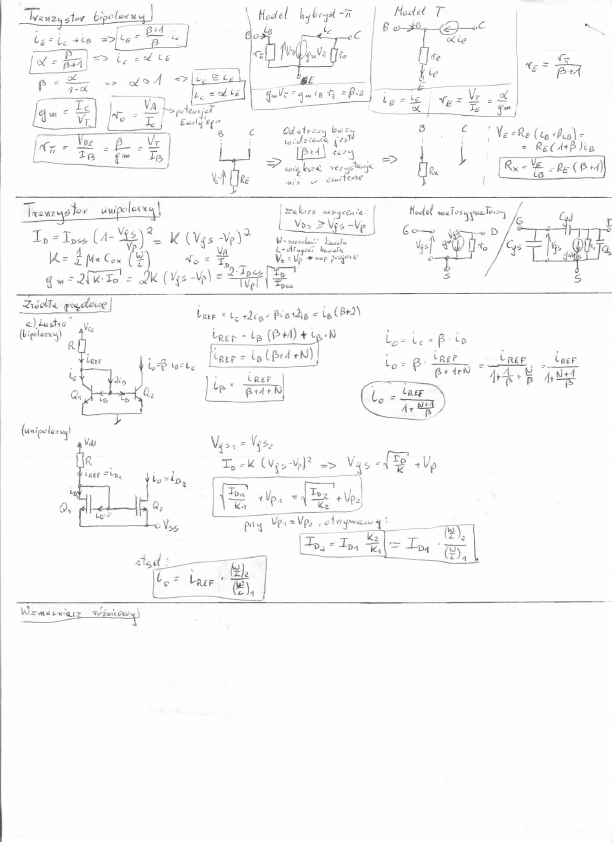 Tranzystor bipolarny
Model hybryd-π
Model T
i_E = i_C + i_B ⇒ i_E = (β+1)/β · i_C
α = β/(β+1) ⇒ i_C = α i_E
β = α/(1-α) ⇒ α ≈ 1 ⇒ i_C ≅ i_E
i_C = α i_E
g_m = I_C/V_T
r_o = V_A/I_C
potencjał Early'ego
r_π = V_BE/I_B = β/g_m = V_T/I_B
g_m V_π = g_m i_B r_π = β i_B
i_E = i_C/α
r_E = V_T/I_E = α/g_m
r_E = r_π/(β+1)
Od strony bazy
widziana jest
(β+1) razy
większa rezystancja
niż w emiterze
V_E = R_E (i_B + β i_B) =
= R_E (1+β) i_B
R_x = V_E/i_B = R_E (β+1)
Tranzystor unipolarny
I_D = I_DSS (1 - V_gs/V_p)² = K (V_gs - V_p)²
K = 1/2 μ_n C_ox (W/L)
r_o = V_A/I_D
g_m = 2√(K·I_D) = 2K (V_gs - V_p) = 2·I_DSS/|V_p| √(I_D/I_DSS)
zakres nasycenia:
V_DS ≥ V_gs - V_p
W - szerokość kanału
L - długość kanału
Model małosygnałowy
Źródła prądowe
a) "lustro"
(bipolarny)
V_CC
R
i_REF
i_C
2i_B
i_o = β i_B = i_C
Q_1
Q_2
i_REF = i_C + 2i_B = β i_B + 2i_B = i_B (β+2)
i_REF = i_B (β+1) + i_B · N
i_REF = i_B (β+1+N)
i_B = i_REF/(β+1+N)
i_o = i_C = β · i_B
i_o = β · i_REF/(β+1+N) = i_REF/(1+1/β+N/β) = i_REF/(1+(N+1)/β)
i_o = i_REF/(1+(N+1)/β)
(unipolarny)
V_dd
R
i_REF = i_D1
i_o = i_D2
Q_1
Q_2
V_SS
V_gs1 = V_gs2
I_D = K (V_gs - V_p)² ⇒ V_gs = √(I_D/K) + V_p
√(I_D1/K_1) + V_p1 = √(I_D2/K_2) + V_p2
przy V_p1 = V_p2, otrzymamy:
I_D2 = I_D1 K_2/K_1 = I_D1 · (W/L)_2/(W/L)_1
stąd:
i_o = i_REF · (W/L)_2/(W/L)_1
Wzmacniacz różnicowy